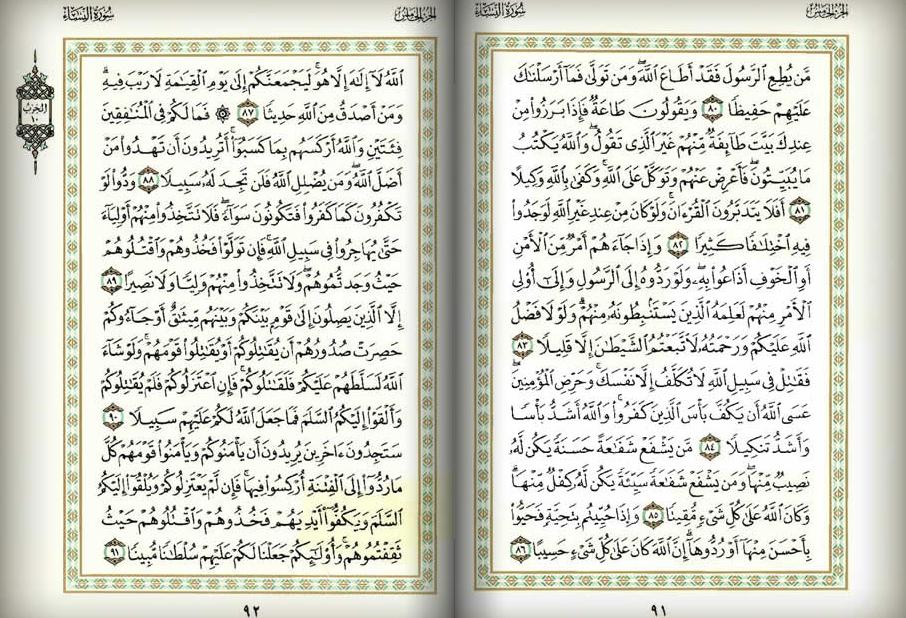 الجزء الخامس
سورة النساء
مَّن يُطِعِ ٱلرَّسُولَ فَقَدْ أَطَاعَ ٱللَّهَ ۖ وَمَن تَوَلَّىٰ فَمَآ أَرْسَلْنَٰكَ
عَلَيْهِمْ حَفِيظًا ٨٠ وَيَقُولُونَ طَاعَةٌ فَإِذَا بَرَزُوا۟ مِنْ
عِندِكَ بَيَّتَ طَآئِفَةٌ مِّنْهُمْ غَيْرَ ٱلَّذِى تَقُولُ ۖ وَٱللَّهُ يَكْتُبُ
مَا يُبَيِّتُونَ ۖ فَأَعْرِضْ عَنْهُمْ وَتَوَكَّلْ عَلَى ٱللَّهِ ۚ وَكَفَىٰ بِٱللَّهِ وَكِيلًا
٨١ أَفَلَا يَتَدَبَّرُونَ ٱلْقُرْءَانَ ۚ وَلَوْ كَانَ مِنْ عِندِ غَيْرِ ٱللَّهِ لَوَجَدُوا۟
فِيهِ ٱخْتِلَٰفًا كَثِيرًا ٨٢ وَإِذَا جَآءَهُمْ أَمْرٌ مِّنَ ٱلْأَمْنِ
أَوِ ٱلْخَوْفِ أَذَاعُوا۟ بِهِۦ ۖ وَلَوْ رَدُّوهُ إِلَى ٱلرَّسُولِ وَإِلَىٰٓ أُو۟لِى
ٱلْأَمْرِ مِنْهُمْ لَعَلِمَهُ ٱلَّذِينَ يَسْتَنۢبِطُونَهُۥ مِنْهُمْ ۗ وَلَوْلَا فَضْلُ
ٱللَّهِ عَلَيْكُمْ وَرَحْمَتُهُۥ لَٱتَّبَعْتُمُ ٱلشَّيْطَٰنَ إِلَّا قَلِيلًا ٨٣
فَقَٰتِلْ فِى سَبِيلِ ٱللَّهِ لَا تُكَلَّفُ إِلَّا نَفْسَكَ ۚ وَحَرِّضِ ٱلْمُؤْمِنِينَ ۖ
عَسَى ٱللَّهُ أَن يَكُفَّ بَأْسَ ٱلَّذِينَ كَفَرُوا۟ ۚ وَٱللَّهُ أَشَدُّ بَأْسًا
وَأَشَدُّ تَنكِيلًا ٨٤ مَّن يَشْفَعْ شَفَٰعَةً حَسَنَةً يَكُن لَّهُۥ
نَصِيبٌ مِّنْهَا ۖ وَمَن يَشْفَعْ شَفَٰعَةً سَيِّئَةً يَكُن لَّهُۥ كِفْلٌ مِّنْهَا ۗ
وَكَانَ ٱللَّهُ عَلَىٰ كُلِّ شَىْءٍ مُّقِيتًا ٨٥ وَإِذَا حُيِّيتُم بِتَحِيَّةٍ فَحَيُّوا۟
بِأَحْسَنَ مِنْهَآ أَوْ رُدُّوهَآ ۗ إِنَّ ٱللَّهَ كَانَ عَلَىٰ كُلِّ شَىْءٍ حَسِيبًا ٨٦
٩١
الجزء الخامس
سورة النساء
ٱللَّهُ لَآ إِلَٰهَ إِلَّا هُوَ ۚ لَيَجْمَعَنَّكُمْ إِلَىٰ يَوْمِ ٱلْقِيَٰمَةِ لَا رَيْبَ فِيهِ ۗ
وَمَنْ أَصْدَقُ مِنَ ٱللَّهِ حَدِيثًا ٨٧ ۞ فَمَا لَكُمْ فِى ٱلْمُنَٰفِقِينَ
فِئَتَيْنِ وَٱللَّهُ أَرْكَسَهُم بِمَا كَسَبُوٓا۟ ۚ أَتُرِيدُونَ أَن تَهْدُوا۟ مَنْ
أَضَلَّ ٱللَّهُ ۖ وَمَن يُضْلِلِ ٱللَّهُ فَلَن تَجِدَ لَهُۥ سَبِيلًا ٨٨ وَدُّوا۟ لَوْ
تَكْفُرُونَ كَمَا كَفَرُوا۟ فَتَكُونُونَ سَوَآءً ۖ فَلَا تَتَّخِذُوا۟ مِنْهُمْ أَوْلِيَآءَ
حَتَّىٰ يُهَاجِرُوا۟ فِى سَبِيلِ ٱللَّهِ ۚ فَإِن تَوَلَّوْا۟ فَخُذُوهُمْ وَٱقْتُلُوهُمْ
حَيْثُ وَجَدتُّمُوهُمْ ۖ وَلَا تَتَّخِذُوا۟ مِنْهُمْ وَلِيًّا وَلَا نَصِيرًا ٨٩
إِلَّا ٱلَّذِينَ يَصِلُونَ إِلَىٰ قَوْمٍۭ بَيْنَكُمْ وَبَيْنَهُم مِّيثَٰقٌ أَوْ جَآءُوكُمْ
حَصِرَتْ صُدُورُهُمْ أَن يُقَٰتِلُوكُمْ أَوْ يُقَٰتِلُوا۟ قَوْمَهُمْ ۚ وَلَوْ شَآءَ
ٱللَّهُ لَسَلَّطَهُمْ عَلَيْكُمْ فَلَقَٰتَلُوكُمْ ۚ فَإِنِ ٱعْتَزَلُوكُمْ فَلَمْ يُقَٰتِلُوكُمْ
وَأَلْقَوْا۟ إِلَيْكُمُ ٱلسَّلَمَ فَمَا جَعَلَ ٱللَّهُ لَكُمْ عَلَيْهِمْ سَبِيلًا ٩٠
سَتَجِدُونَ ءَاخَرِينَ يُرِيدُونَ أَن يَأْمَنُوكُمْ وَيَأْمَنُوا۟ قَوْمَهُمْ كُلَّ
مَا رُدُّوٓا۟ إِلَى ٱلْفِتْنَةِ أُرْكِسُوا۟ فِيهَا ۚ فَإِن لَّمْ يَعْتَزِلُوكُمْ وَيُلْقُوٓا۟ إِلَيْكُمُ
ٱلسَّلَمَ وَيَكُفُّوٓا۟ أَيْدِيَهُمْ فَخُذُوهُمْ وَٱقْتُلُوهُمْ حَيْثُ
ثَقِفْتُمُوهُمْ ۚ وَأُو۟لَٰٓئِكُمْ جَعَلْنَا لَكُمْ عَلَيْهِمْ سُلْطَٰنًا مُّبِينًا ٩١
الحزب
١٠
٩٢